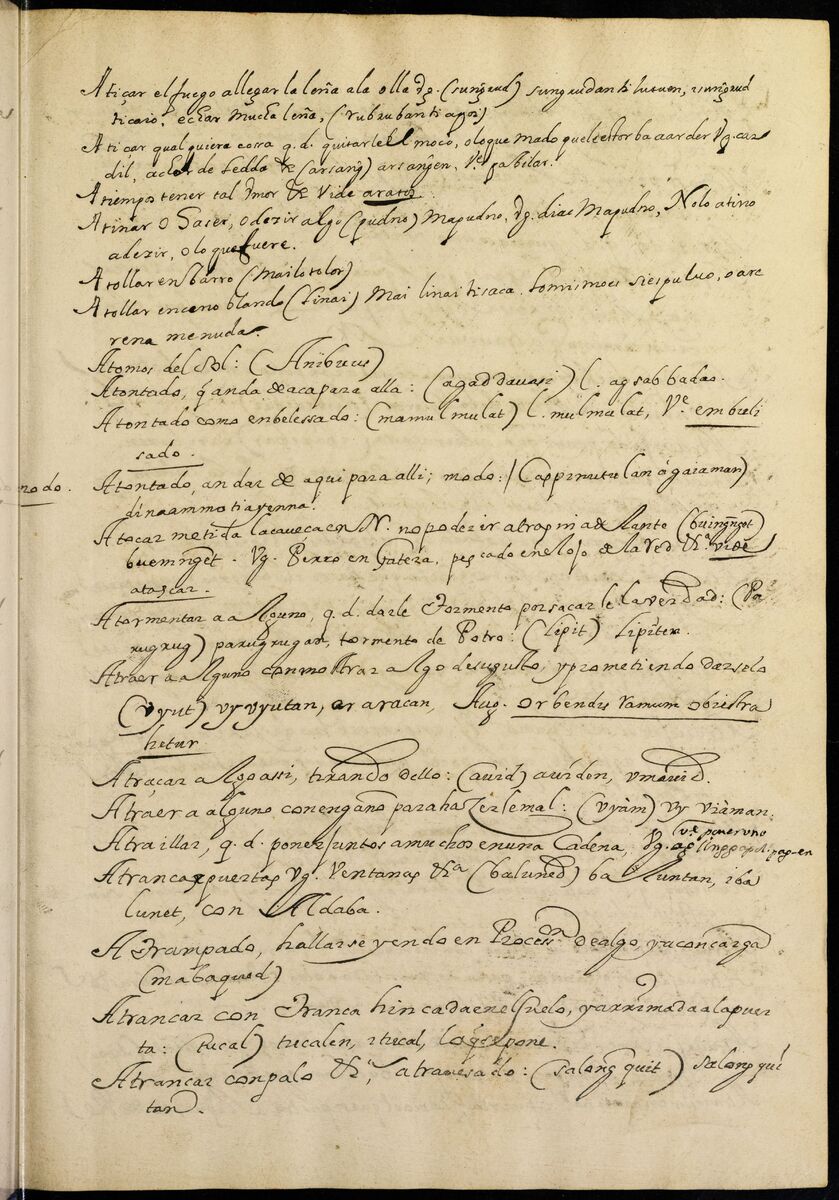 Atiçar el fuego allegar la leña a la olla Vg. (sungrud) sungrudan ti lutuen, isungrud
ti caio, echar mucha leña, (rubruban ti apoy)
Atiçar qualquiera cosa q. d. quitarle el moco, o lo quemado que le estorba a arder Vg. can
dil, achon de Sedda &c (arsang) arsangen, Ve. pabilar.
Atiempos tener tal Vmor &c Vide aratos.
Atinar o Saser, o dezir algo (pudno) Mapudno, Vg. diac Mapudno, No lo atino
a dezir, o lo que fuere.
Atollar en barro (Mailotolot)
Atollar en cieno blando (Linai) Mai linai ti saca. Lo mismo es si es pulvo, o are
rena menuda.
Atomos del Sol: (Anibucus)
Atontado, q̃ anda de aca para alla: (agaddauasi) l. agsabbadao.
Atontado como enbelessado: (mamulmulat) l. mulmulat, Ve. embeli
sado.
Atontado, andar de aqui para alli; modo: (Capprinutulan ó gaiaman)
dinaammo ti ayenna.
modo.
Atocar metida la caveça en N. no poder ir atras ni adelante (buingnget)
buemnget. Vg. Perro en Gatera, pescado en el ojo de la red &a vide
atascar.
Atormentar a alguno, q. d. darle tormento por sacarle la verdad: (Pa
rugrug) parugrugan, tormento de Potro: (Lipit) Lipiten.
Atraer a alguno con mostrar algo de su gusto, y prometiendo darselo
(vyut) vyvyutan, ar aracan, Aug. orbendis ramum obiestra
hetur
Atraçar algo assi, tirando dello: (auid) auiden, vmáuid.
Atraer a alguno con engaño para hazerle mal: (vyàm) vy viàman.
Atraillar, q. d. poner juntos a muchos en una Cadena,
ve poner vno
Atrancar puertas Vg. Ventanas &a (baluned) ba lluntan, iba
lunet, con Aldaba.
Atrampado, hallarse yendo en Processn de algo, ya con carga
(mabaquod)
Atrancar con tranca hincada en el suelo, y arrimada a la puer
ta: (tucal) tucalen, itucal, lo q̃ se pone.
Atrancar con palo &a, atravesado: (salongquit) salongqui
tan.